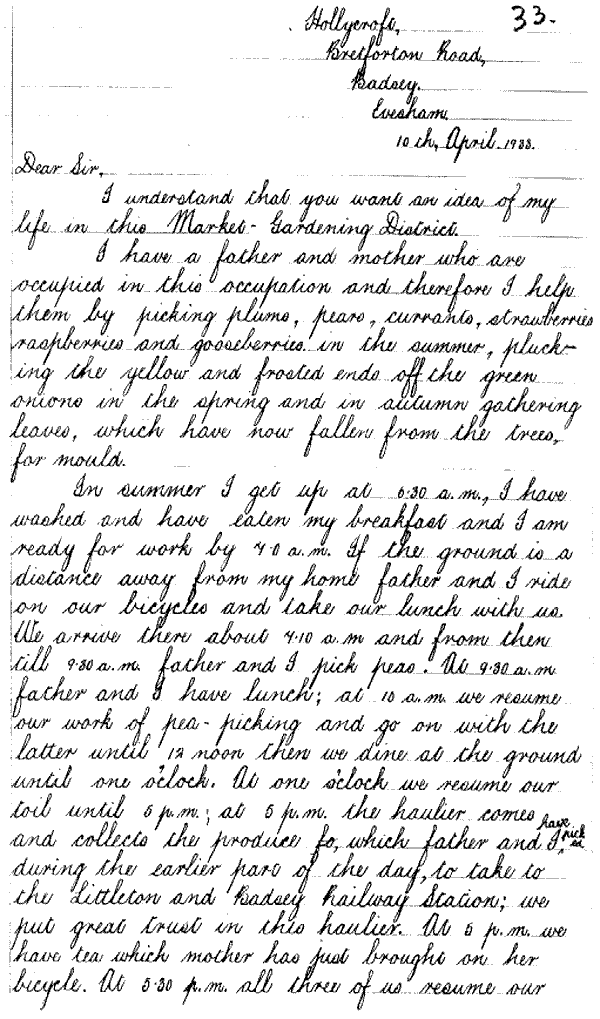 33.
Hollycroft,
Bretforton Road,
Badsey.
Evesham.
10th, April. 1933.
Dear Sir,
I understand that you want an idea of my
life in this Market-Gardening District.
I have a father and mother who are
occupied in this occupation and therefore I help
them by picking plums, pears, currants, strawberries
raspberries and gooseberries in the summer, pluck-
ing the yellow and frosted ends off the green
onions in the spring and in autumn gathering
leaves, which have now fallen from the trees,
for mould.
In summer I get up at 6.30 a.m., I have
washed and have eaten my breakfast and I am
ready for work by 7.0 a.m. If the ground is a
distance away from my home father and I ride
on our bicycles and take our lunch with us.
We arrive there about 7.10 a.m and from then
till 9.30 a.m. father and I pick peas. At 9.30 a.m.
father and I have lunch; at 10 a.m. we resume
our work of pea-picking and go on with the
latter until 12 noon then we dine at the ground
until one o'clock. At one o'clock we resume our
toil until 5 p.m.; at 5 p.m. the haulier comes
and collects the produce, which father and I have picked
during the earlier part of the day, to take to
the Littleton and Badsey Railway Station; we
put great trust in this haulier. At 5 p.m. we
have tea which mother has just brought on her
bicycle. At 5.30 p.m. all three of us resume our